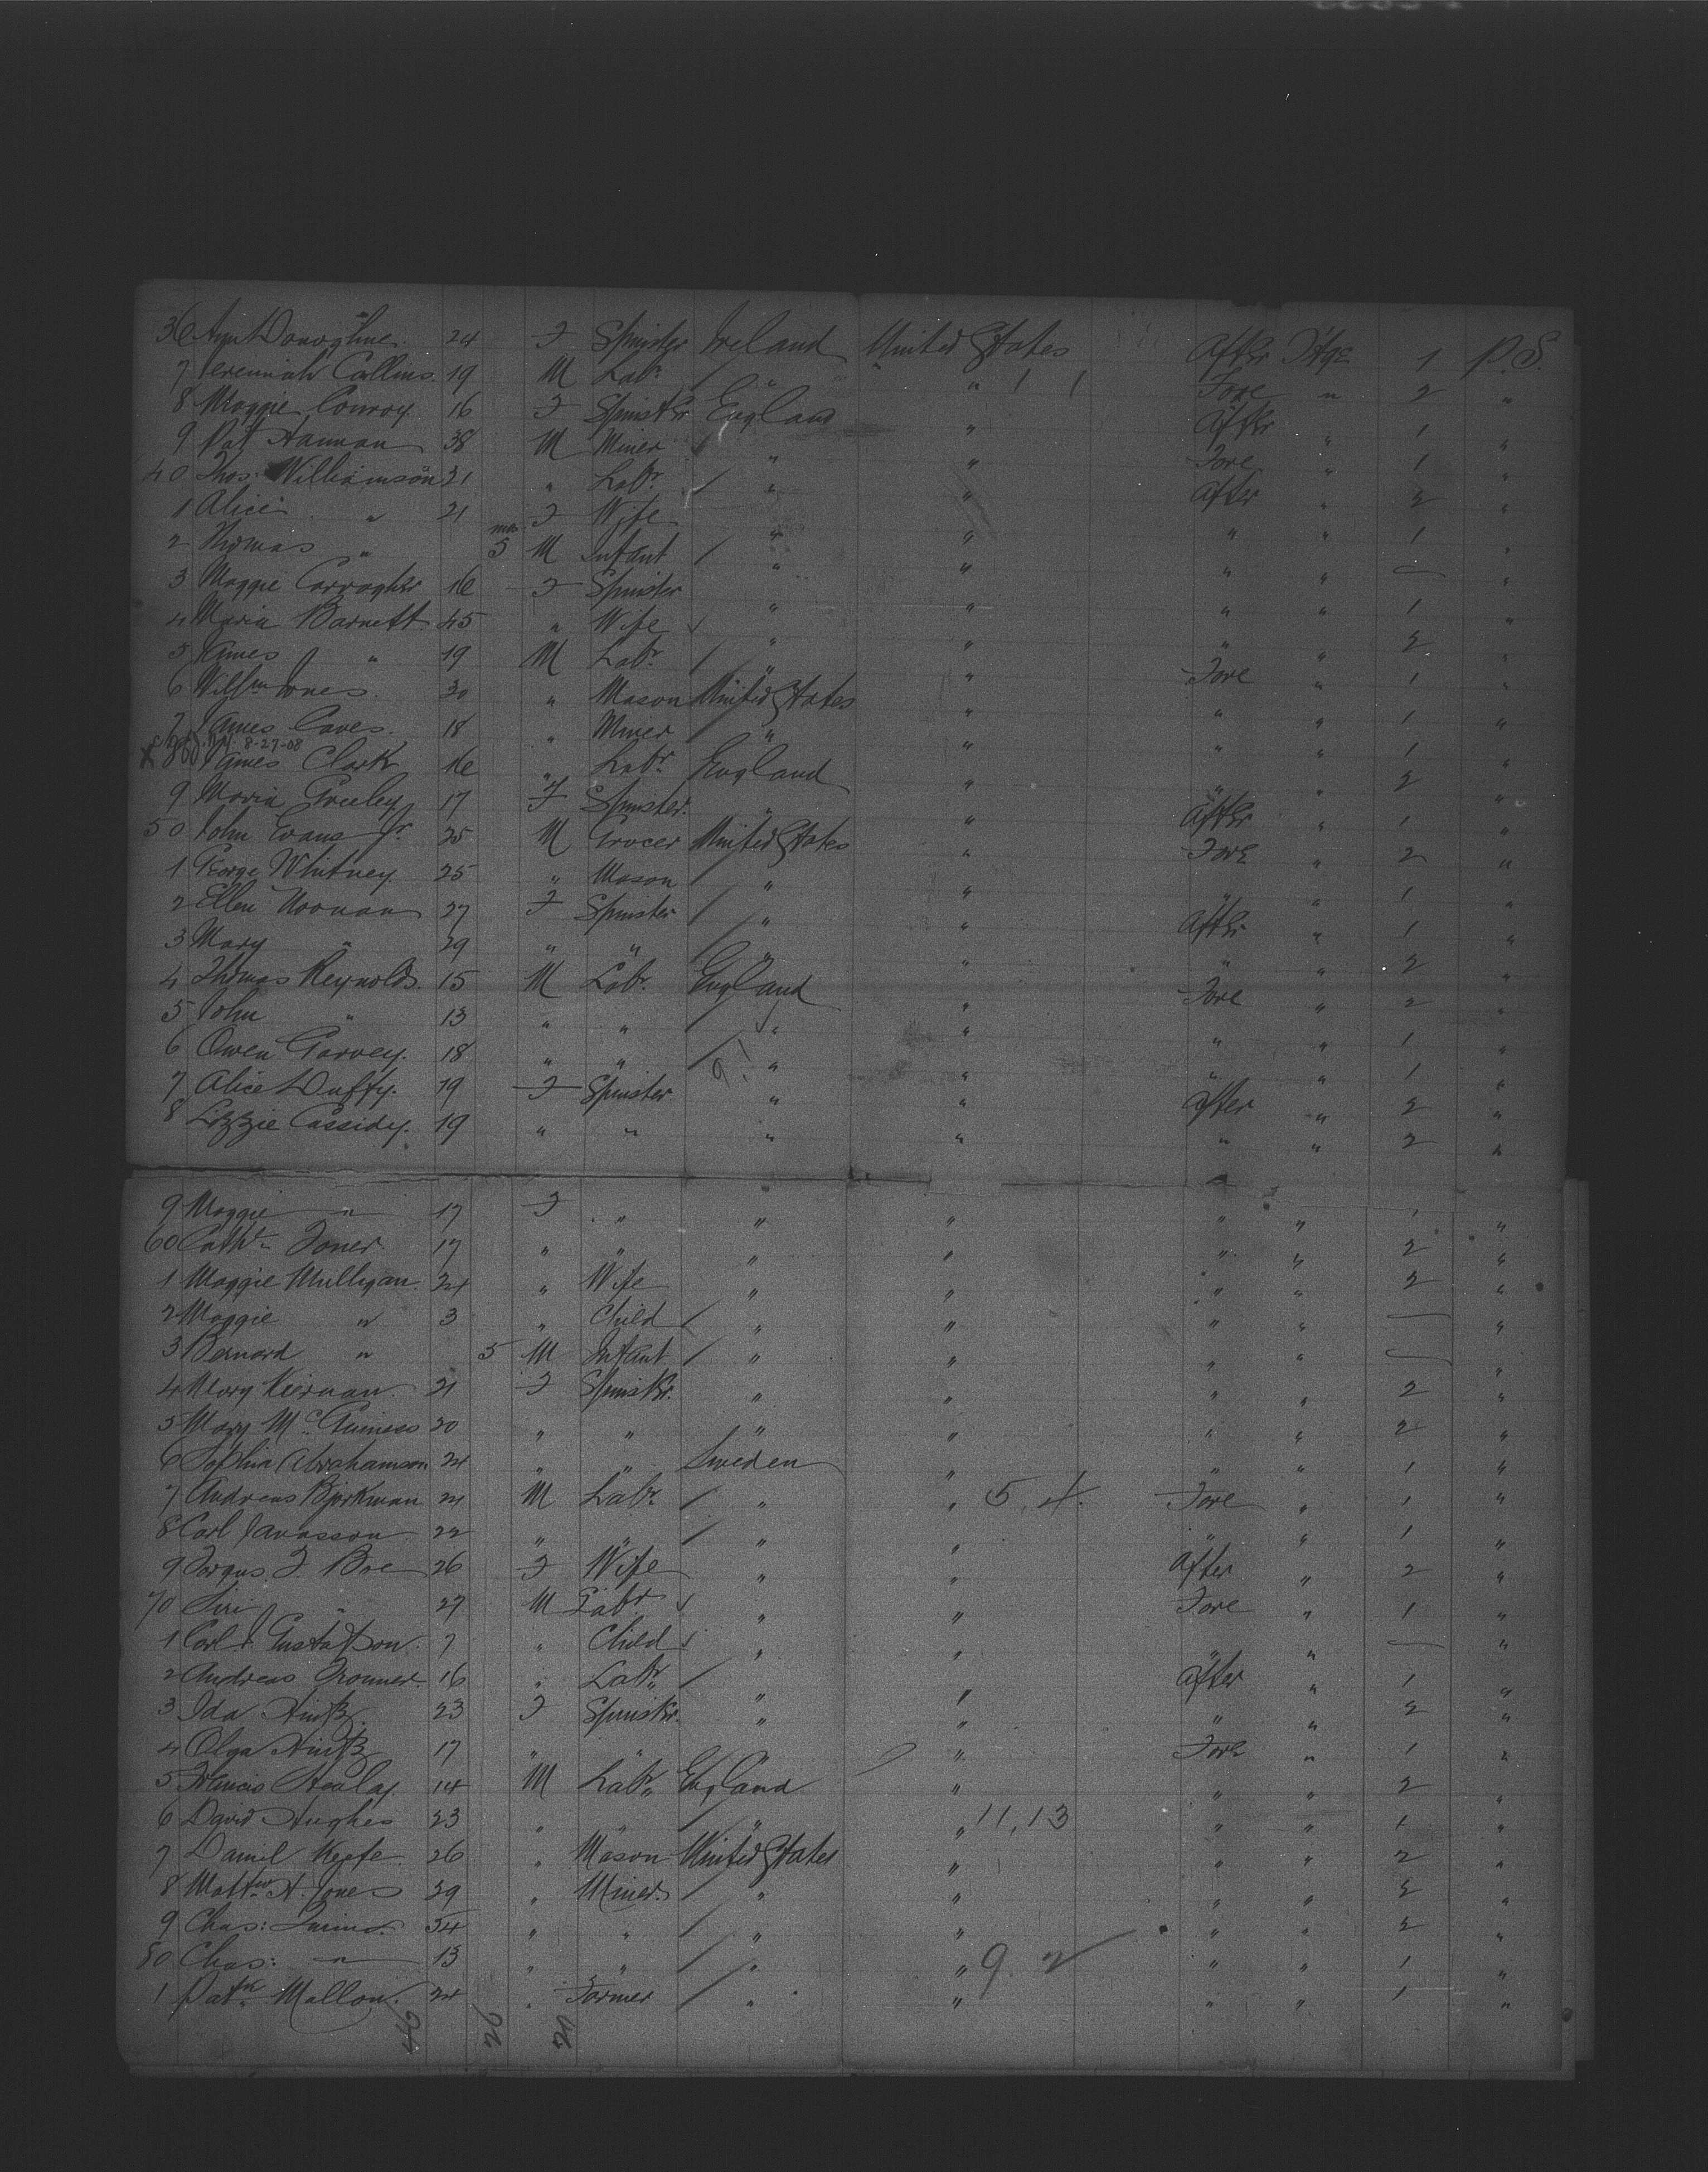 36 Ann Donoghue. 24 F Spinster Ireland United States After Stge 1 P.S.
7 Jeremiah Collins. 19 M Labr. / " " 1 1 Fore " 2 "
8 Maggie Conroy. 16 F Spinster England " After " 1 "
9 Pat Hannan 38 M Miner / " " Fore " 1 "
40 Thos: Williamson 21 " Labr. / " " After " 2 "
1 Alice " 21 F Wife " " " " 1 "
2 Thomas " mos. 5 M Infant / " " " " — "
3 Maggie Carragher 16 F Spinster " " " " 1 "
4 Maria Barnett. 45 " Wife " " " " 2 "
5 James " 19 M Labr. / " " Fore " 1 "
6 Willm Jones. 30 " Mason United States " " " 1 "
7 James Caves. 18 " Miner / " " " " 1 "
8-27-08
X 8 James Clark 16 " Labr. England " " " 2 "
9 Maria Greeley 17 F Spinster. " " After " 1 "
50 John Evans Jr. 25 M Grocer United States " Fore " 2 "
1 George Whitney. 25 " Mason / " " " " 1 "
2 Ellen Noonan 27 F Spinster / " " After " 1 "
3 Mary " 29 " " / " " " " 2 "
4 Thomas Reynolds. 15 M Labr. England " Fore " 2 "
5 John " 13 " " / " " " " 1 "
6 Owen Garvey. 18 " " / " " " " 1 "
7 Alice Duffy. 19 F Spinster " " After " 2 "
8 Lizzie Cassidy. 19 " " " " " " 2 "
9 Maggie " 17 F " " " " " 1 "
60 Cathe. Toner. 17 " " " " " " 2 "
1 Maggie Mulligan. 24 " Wife " " " " 2 "
2 Maggie " 3 " Child / " " " " — "
3 Bernard " 5 M Infant / " " " " — "
4 Mary Kiernan. 21 F Spinster. " " " " 2 "
5 Mary McGuiness 20 " " " " " " 2 "
6 Sophia Abrahamson 24 " " Sweden " " " 1 "
7 Andreas Bjorkman 21 M Labr. / " " 5, 4. Fore " 1 "
8 Carl Janasson 22 " " / " " " " 1 "
9 F. Boe 26 F Wife " " After " 2 "
70 Siri " 27 M Labr " " Fore " 1 "
1 Carl Gustafson. 7 " Child " " " " — "
2 Andreas 16 " Labr. / " " After " 1 "
3 Ida 23 F Spinster. " " " " 2 "
4 Olga 17 " " " " Fore " 1 "
5 Francis Healey. 14 M Labr. England " " " 2 "
6 David Hughes 23 " " / " " 11, 13 " " 1 "
7 Daniel Keefe. 26 " Mason United States " " " 2 "
8 Mattw H. Jones 39 " Miner. / " " " " 2 "
9 Chas: 54 " " / " " " " 2 "
80 Chas: " 13 " " / " " 9. 2 " " 1 "
1 Patk. Mallon. 24 " Farmer / " " " " 1 "